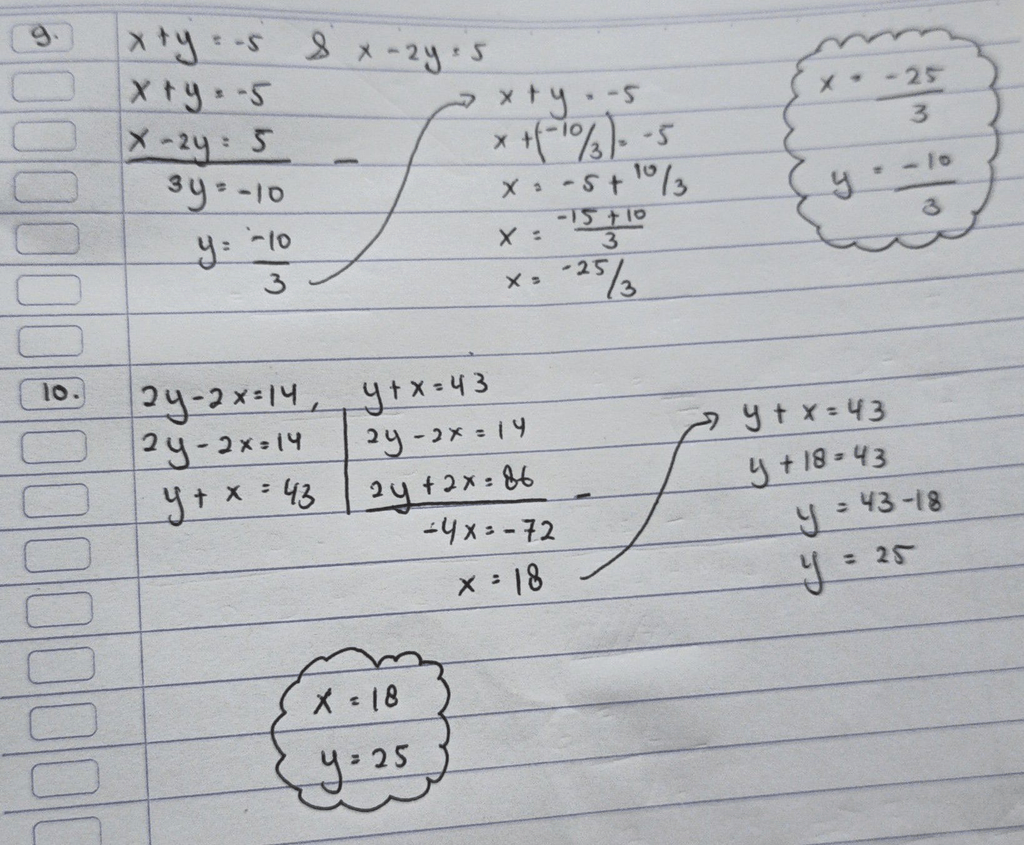 9. x + y = -5 & x - 2y = 5
x + y = -5
x - 2y = 5 -
3y = -10
y = -10/3
x + y = -5
x + (-10/3) = -5
x = -5 + 10/3
x = -15 + 10/3
x = -25/3
x = -25/3
y = -10/3
10. 2y - 2x = 14, y + x = 43
2y - 2x = 14 | 2y - 2x = 14
y + x = 43 | 2y + 2x = 86 -
-4x = -72
x = 18
y + x = 43
y + 18 = 43
y = 43 - 18
y = 25
x = 18
y = 25